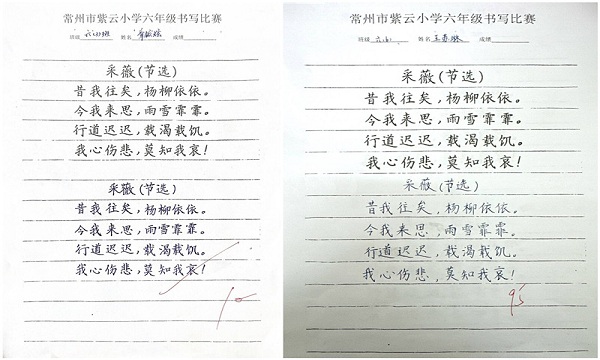 常州市紫云小学六年级书写比赛
班级 姓名 成绩
采薇(节选)
昔我往矣,杨柳依依。
今我来思,雨雪霏霏。
行道迟迟,载渴载饥。
我心伤悲,莫知我哀!
采薇(节选)
昔我往矣,杨柳依依。
今我来思,雨雪霏霏。
行道迟迟,载渴载饥。
我心伤悲,莫知我哀!
常州市紫云小学六年级书写比赛
班级 姓名 成绩
采薇(节选)
昔我往矣,杨柳依依。
今我来思,雨雪霏霏。
行道迟迟,载渴载饥。
我心伤悲,莫知我哀!
采薇(节选)
昔我往矣,杨柳依依。
今我来思,雨雪霏霏。
行道迟迟,载渴载饥。
我心伤悲,莫知我哀!
95